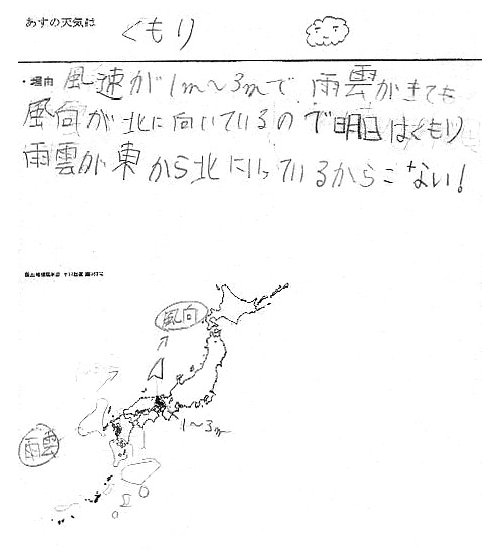 あすの天気は くもり
・理由 風速が1m〜3mで雨雲がきても
風向が北に向いているので明日はくもり
雨雲が東から北にいっているからこない!
風向
1〜3m
雨雲